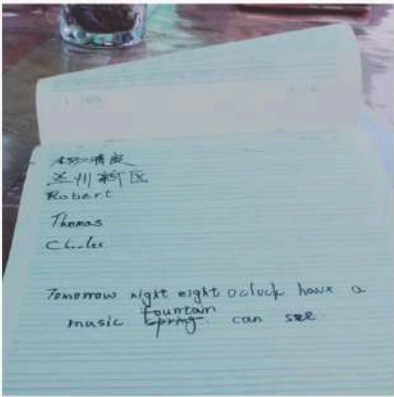 兰州新区
Robert
Thomas
Charles
Tomorrow night eight oclock have a
fountain
music spring. can see